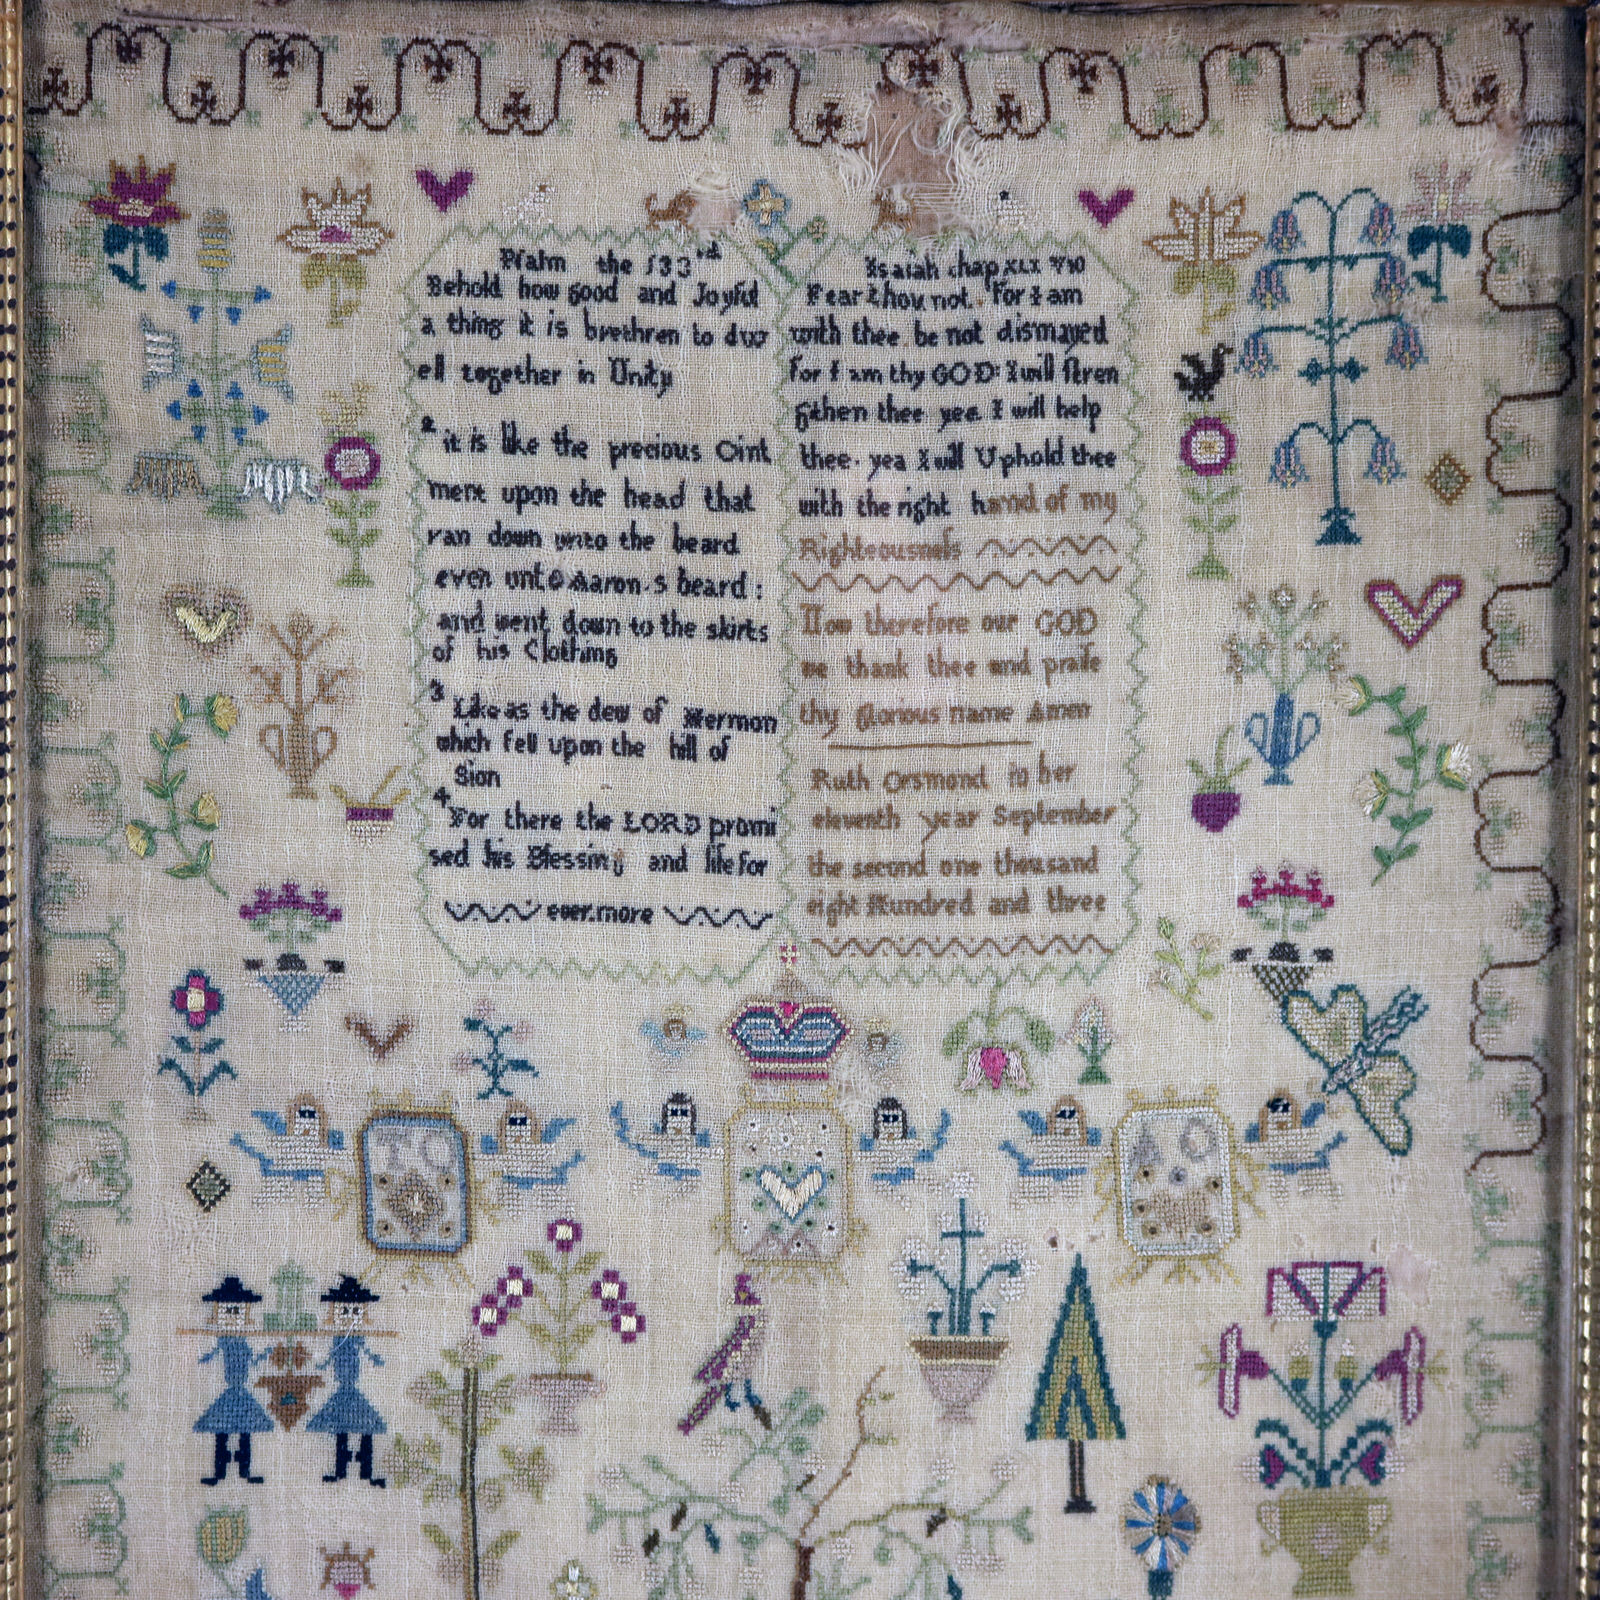 Psalm the 133rd
Behold how good and Joyful
a thing it is brethren to dw
ell together in Unity
2 it is like the precious Oint
ment upon the head that
ran down unto the beard
even unto Aaron.s beard:
and went down to the skirts
of his Clothing
3 Like as the dew of Hermon
which fell upon the hill of
Sion
4 For there the LORD promi
sed his Blessing and life for
ever.more
Isaiah chap XLI V10
Fear thou not. For I am
with thee be not dismayed
for I am thy GOD: I will ſtren
gthen thee yea I will help
thee. yea I will Uphold thee
with the right hand of my
Righteousneſs
Now therefore our GOD
we thank thee and praiſe
thy glorious name Amen
Ruth Orsmond in her
eleventh year September
the second one thousand
eight Hundred and three